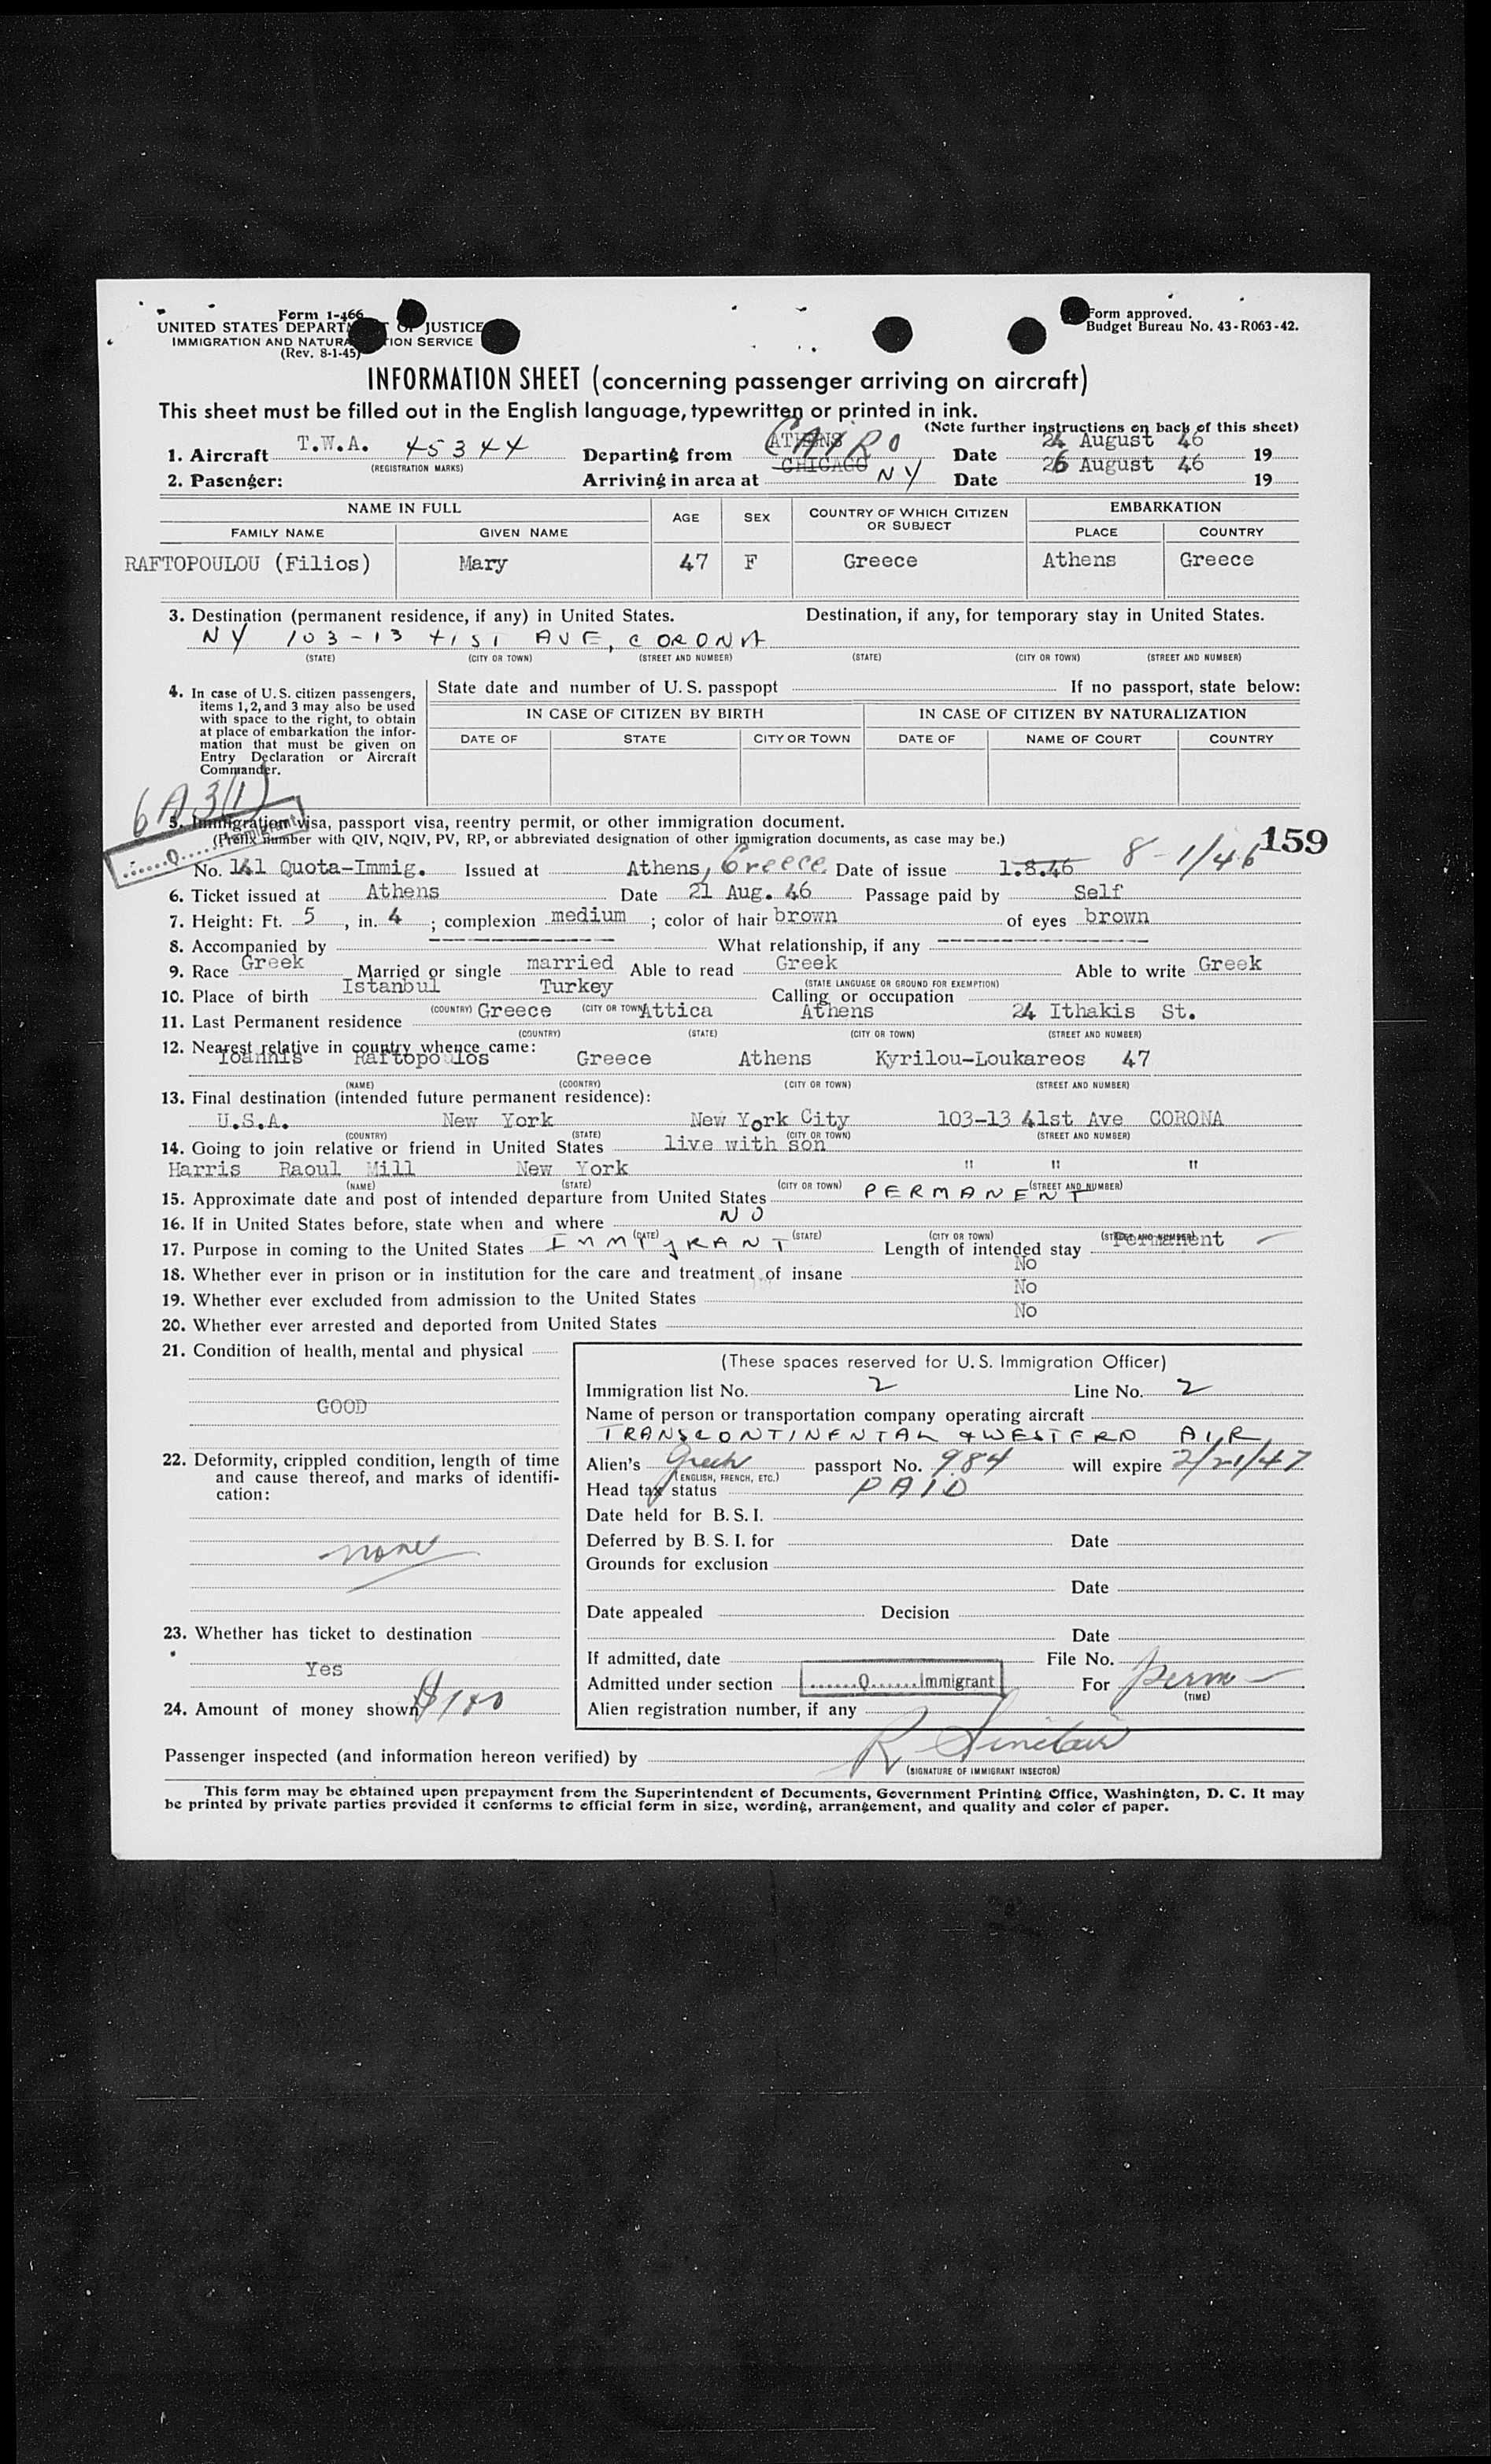 Form 1-466
UNITED STATES DEPART OF JUSTICE
IMMIGRATION AND NATURA TION SERVICE
(Rev. 8-1-45)
Form approved.
Budget Bureau No. 43-R063-42.
INFORMATION SHEET (concerning passenger arriving on aircraft)
This sheet must be filled out in the English language, typewritten or printed in ink.
(Note further instructions on back of this sheet)
1. Aircraft T.W.A. 45344 Departing from ATHENS CAIRO Date 24 August 46 19
(REGISTRATION MARKS)
2. Pasenger: Arriving in area at CHICAGO NY Date 26 August 46 19
NAME IN FULL AGE SEX COUNTRY OF WHICH CITIZEN OR SUBJECT EMBARKATION
FAMILY NAME GIVEN NAME PLACE COUNTRY
RAFTOPOULOU (Filios) Mary 47 F Greece Athens Greece
3. Destination (permanent residence, if any) in United States. Destination, if any, for temporary stay in United States.
NY 103-13 41ST AVE, CORONA
(STATE) (CITY OR TOWN) (STREET AND NUMBER) (STATE) (CITY OR TOWN) (STREET AND NUMBER)
4. In case of U.S. citizen passengers,
items 1, 2, and 3 may also be used
with space to the right, to obtain
at place of embarkation the infor-
mation that must be given on
Entry Declaration or Aircraft
Commander.
State date and number of U.S. passpopt If no passport, state below:
IN CASE OF CITIZEN BY BIRTH IN CASE OF CITIZEN BY NATURALIZATION
DATE OF STATE CITY OR TOWN DATE OF NAME OF COURT COUNTRY
6A3(1)
......Q......Immigrant
5. Immigration visa, passport visa, reentry permit, or other immigration document.
(Prefix number with QIV, NQIV, PV, RP, or abbreviated designation of other immigration documents, as case may be.)
159
No. 141 Quota-Immig. Issued at Athens, Greece Date of issue 1.8.46 8-1/46
6. Ticket issued at Athens Date 21 Aug. 46 Passage paid by Self
7. Height: Ft. 5, in. 4; complexion medium; color of hair brown of eyes brown
8. Accompanied by ---------- What relationship, if any ----------
9. Race Greek Married or single married Able to read Greek Able to write Greek
(STATE LANGUAGE OR GROUND FOR EXEMPTION)
10. Place of birth Istanbul Turkey Calling or occupation
(COUNTRY) (CITY OR TOWN)
11. Last Permanent residence Greece Attica Athens 24 Ithakis St.
(COUNTRY) (STATE) (CITY OR TOWN) (STREET AND NUMBER)
12. Nearest relative in country whence came:
Ioannis Raftopoulos Greece Athens Kyrilou-Loukareos 47
(NAME) (COONTRY) (CITY OR TOWN) (STREET AND NUMBER)
13. Final destination (intended future permanent residence):
U.S.A. New York New York City 103-13 41st Ave CORONA
(COUNTRY) (STATE) (CITY OR TOWN) (STREET AND NUMBER)
14. Going to join relative or friend in United States live with son
Harris Raoul Mill New York " " "
(NAME) (STATE) (CITY OR TOWN) (STREET AND NUMBER)
15. Approximate date and post of intended departure from United States PERMANENT
16. If in United States before, state when and where NO
(DATE) (STATE) (CITY OR TOWN) (STREET AND NUMBER)
17. Purpose in coming to the United States IMMIGRANT Length of intended stay Permanent
18. Whether ever in prison or in institution for the care and treatment of insane No
19. Whether ever excluded from admission to the United States No
20. Whether ever arrested and deported from United States No
21. Condition of health, mental and physical
GOOD
22. Deformity, crippled condition, length of time
and cause thereof, and marks of identifi-
cation:
none
23. Whether has ticket to destination
Yes
24. Amount of money shown $140
(These spaces reserved for U.S. Immigration Officer)
Immigration list No. 2 Line No. 2
Name of person or transportation company operating aircraft
TRANSCONTINENTAL & WESTERN AIR
Alien's Greek passport No. 984 will expire 2/21/47
(ENGLISH, FRENCH, ETC.)
Head tax status PAID
Date held for B.S.I.
Deferred by B.S.I. for Date
Grounds for exclusion
Date
Date appealed Decision
Date
If admitted, date File No.
Admitted under section ......Q......Immigrant For perm
(TIME)
Alien registration number, if any
Passenger inspected (and information hereon verified) by R Sinclair
(SIGNATURE OF IMMIGRANT INSECTOR)
This form may be obtained upon prepayment from the Superintendent of Documents, Government Printing Office, Washington, D. C. It may
be printed by private parties provided it conforms to official form in size, wording, arrangement, and quality and color of paper.